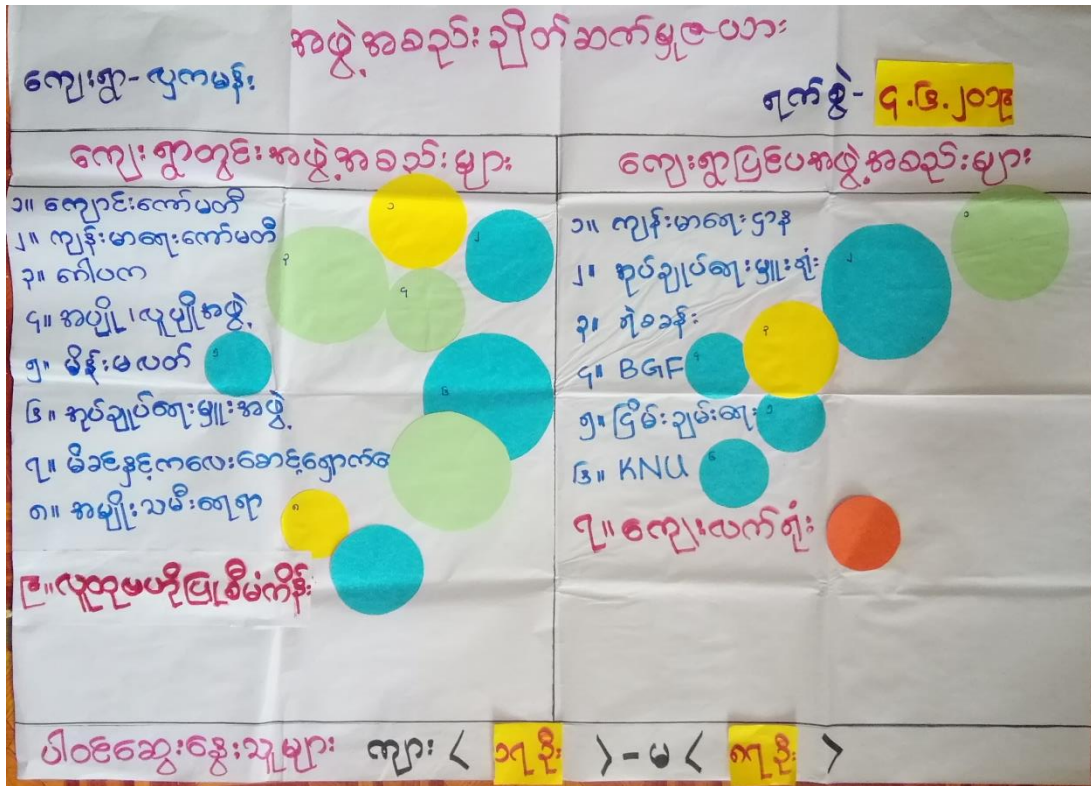 အဖွဲ့အစည်းချိတ်ဆက်မှုဇယား
ကျေးရွာ-လှကမန်း
ရက်စွဲ- ၄.၆.၂၀၁၉
ကျေးရွာတွင်းအဖွဲ့အစည်းများ
၁။ ကျောင်းကော်မတီ
၂။ ကျန်းမာရေးကော်မတီ
၃။ ဂေါပက
၄။ အပျို၊လူပျိုအဖွဲ့
၅။ မိန်းမလတ်
၆။ အုပ်ချုပ်ရေးမှူးအဖွဲ့
၇။ မိခင်နှင့်ကလေးစောင့်ရှောက်ရေး
၈။ အမျိုးသမီးရေးရာ
၉။လူထုဗဟိုပြုစီမံကိန်း
ကျေးရွာပြင်ပအဖွဲ့အစည်းများ
၁။ ကျန်းမာရေးဌာန
၂။ အုပ်ချုပ်ရေးမှူးရုံး
၃။ ရဲစခန်း
၄။ BGF
၅။ ငြိမ်းချမ်းရေး
၆။ KNU
၇။ ကျေးလက်ရုံး
ပါဝင်ဆွေးနွေးသူများ ကျား < ၁၇ ဦး > - မ < ၈၇ ဦး >